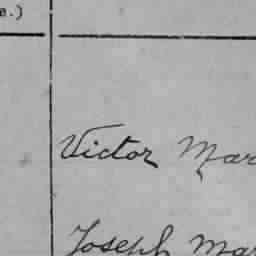 e.)
Victor Mar
Joseph Mar